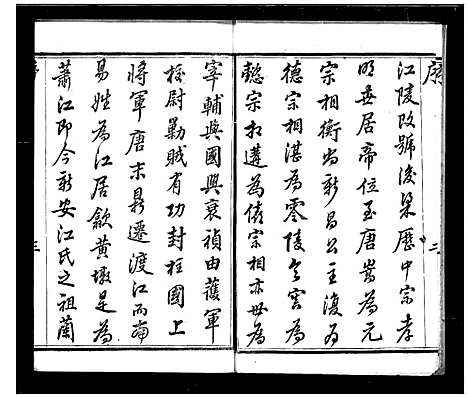 序
三
江陵改號後梁歷中宗孝
明丗居帝位至唐嵩為元
宗相衡尚新昌公主復為
德宗相湛為零陵令寘為
懿宗相遘為僖宗相亦丗為
宰輔與國興衰禎由護軍
校尉勦賊有功封柱國上
將軍唐末易遷渡江而南
易姓為江居歙黃墩是為
蕭江即今新安江氏之祖蘭
三